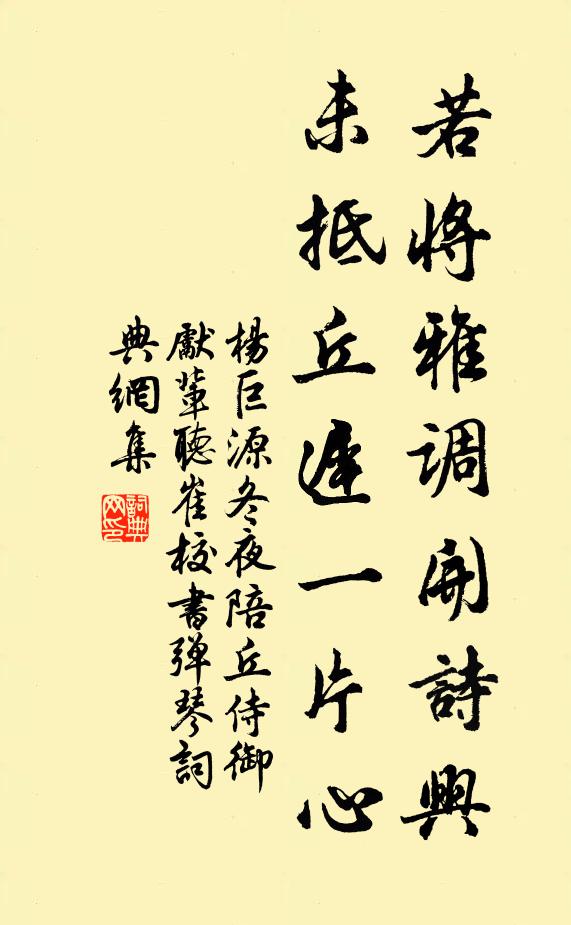 若將雅調開詩興
未抵丘遲一片心
楊巨源冬夜陪丘侍御
獻輩聽崔校書弹琴詞
典網集
詞典
网印